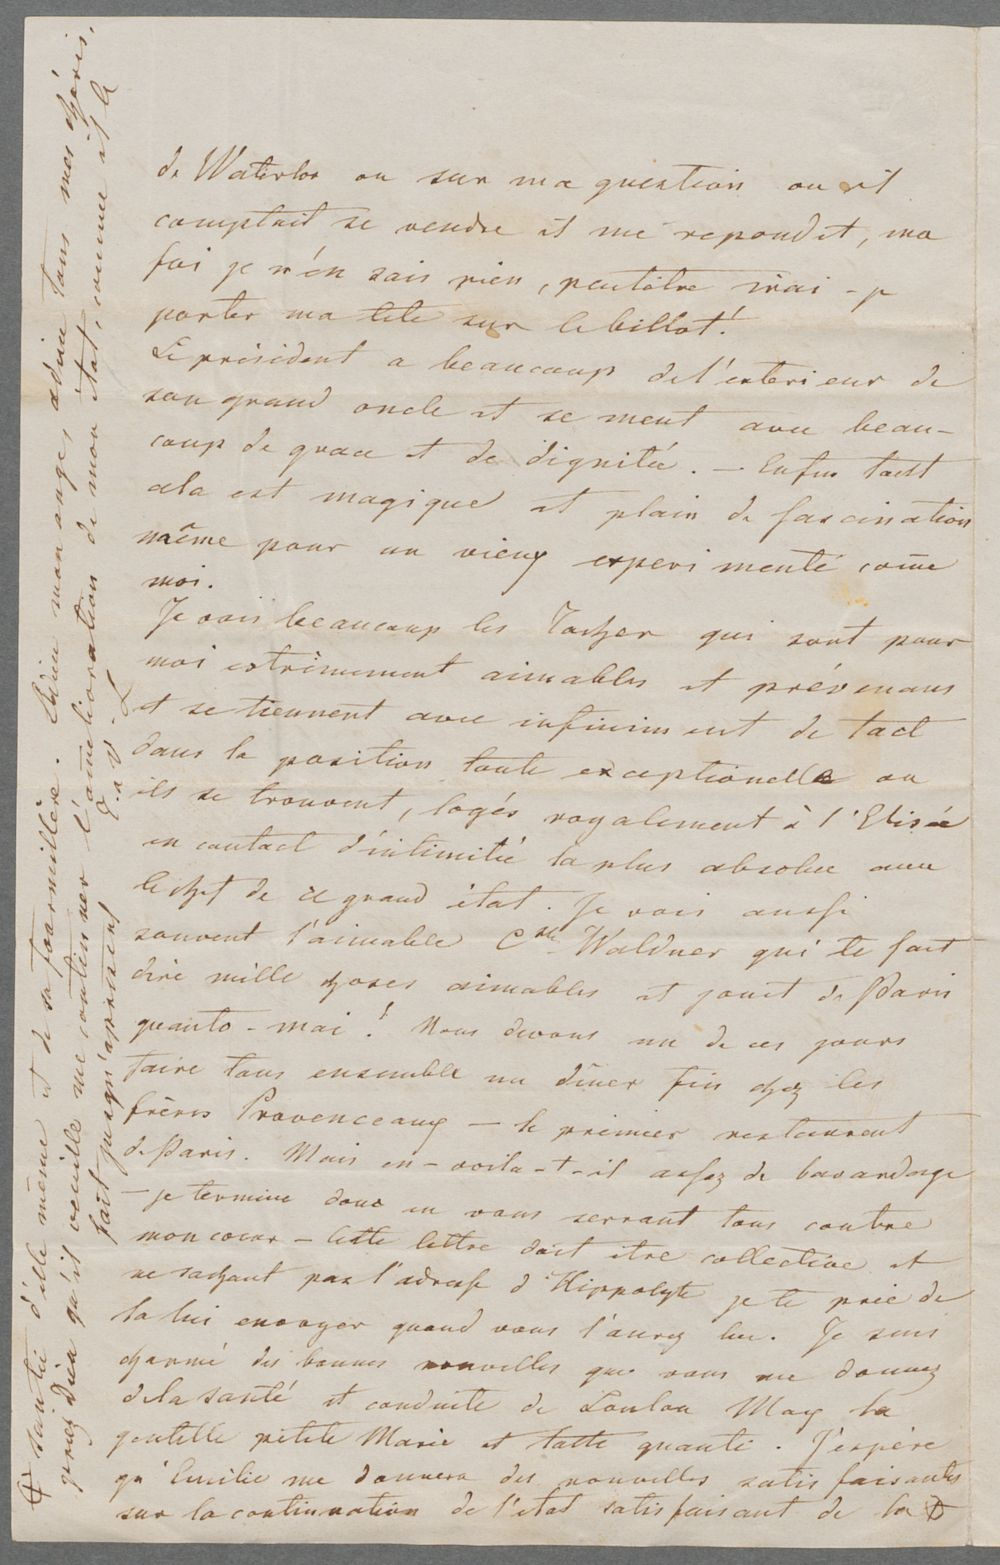 de Waterloo ou sur ma question ou il
comptait se rendre il me repondit, ma
foi je n'én sais rien, peutêtre irai-je
porter ma tete sur le billot!
Le président a beaucoup de l'exterieur de
son grand oncle et se meut avec beau-
coup de grace et de dignitée. – Enfin tout
cela est magique et plein de fascination
même pour un vieux experimenté come
moi.
Je vois beaucoup les Tascher qui sont pour
moi extrèmement aimables et prévenans
et se tiennent avec infiniment de tact
dans la position toute exceptionelle ou
ils se trouvent, logés royalement à l'Elisée
en contact d'intimitée la plus absolue avec
le chef de ce grand état. Je vois aussi
souvent l'aimable Csse Waldner qui te fait
dire mille choses aimables et jouit de Paris
quanto-mai! Nous devons un de ces jours
faire tous ensemble un dîner fin chez les
frères Provenceaux – le premier restaurent
de Paris. Mais en-voila-t-il assez de bavardage
– je termine donc en vous serrant tous contre
mon coeur – Cette lettre doit etre collective et
ne sachant pas l'adresse d'Hippolyte je te prie de
la lui envoyer quand vous l'aurez lue. Je suis
charmé des bonnes nouvelles que vous me donnez
de la santé et conduite de Loulou Max la
gentille petite Marie et tutti quanti. J'espére
qu'Emilie me donnera des nouvelles satisfaisantes
sur la continuation de l'etat satisfaisant de la
santée d'elle même et de sa fourmillère. Adieu mon ange adieu tous mes chèris,
priez Dieu qu'il veuille me continuer l'amelioration de mon état, comme il le
fait jusqu'aprésent